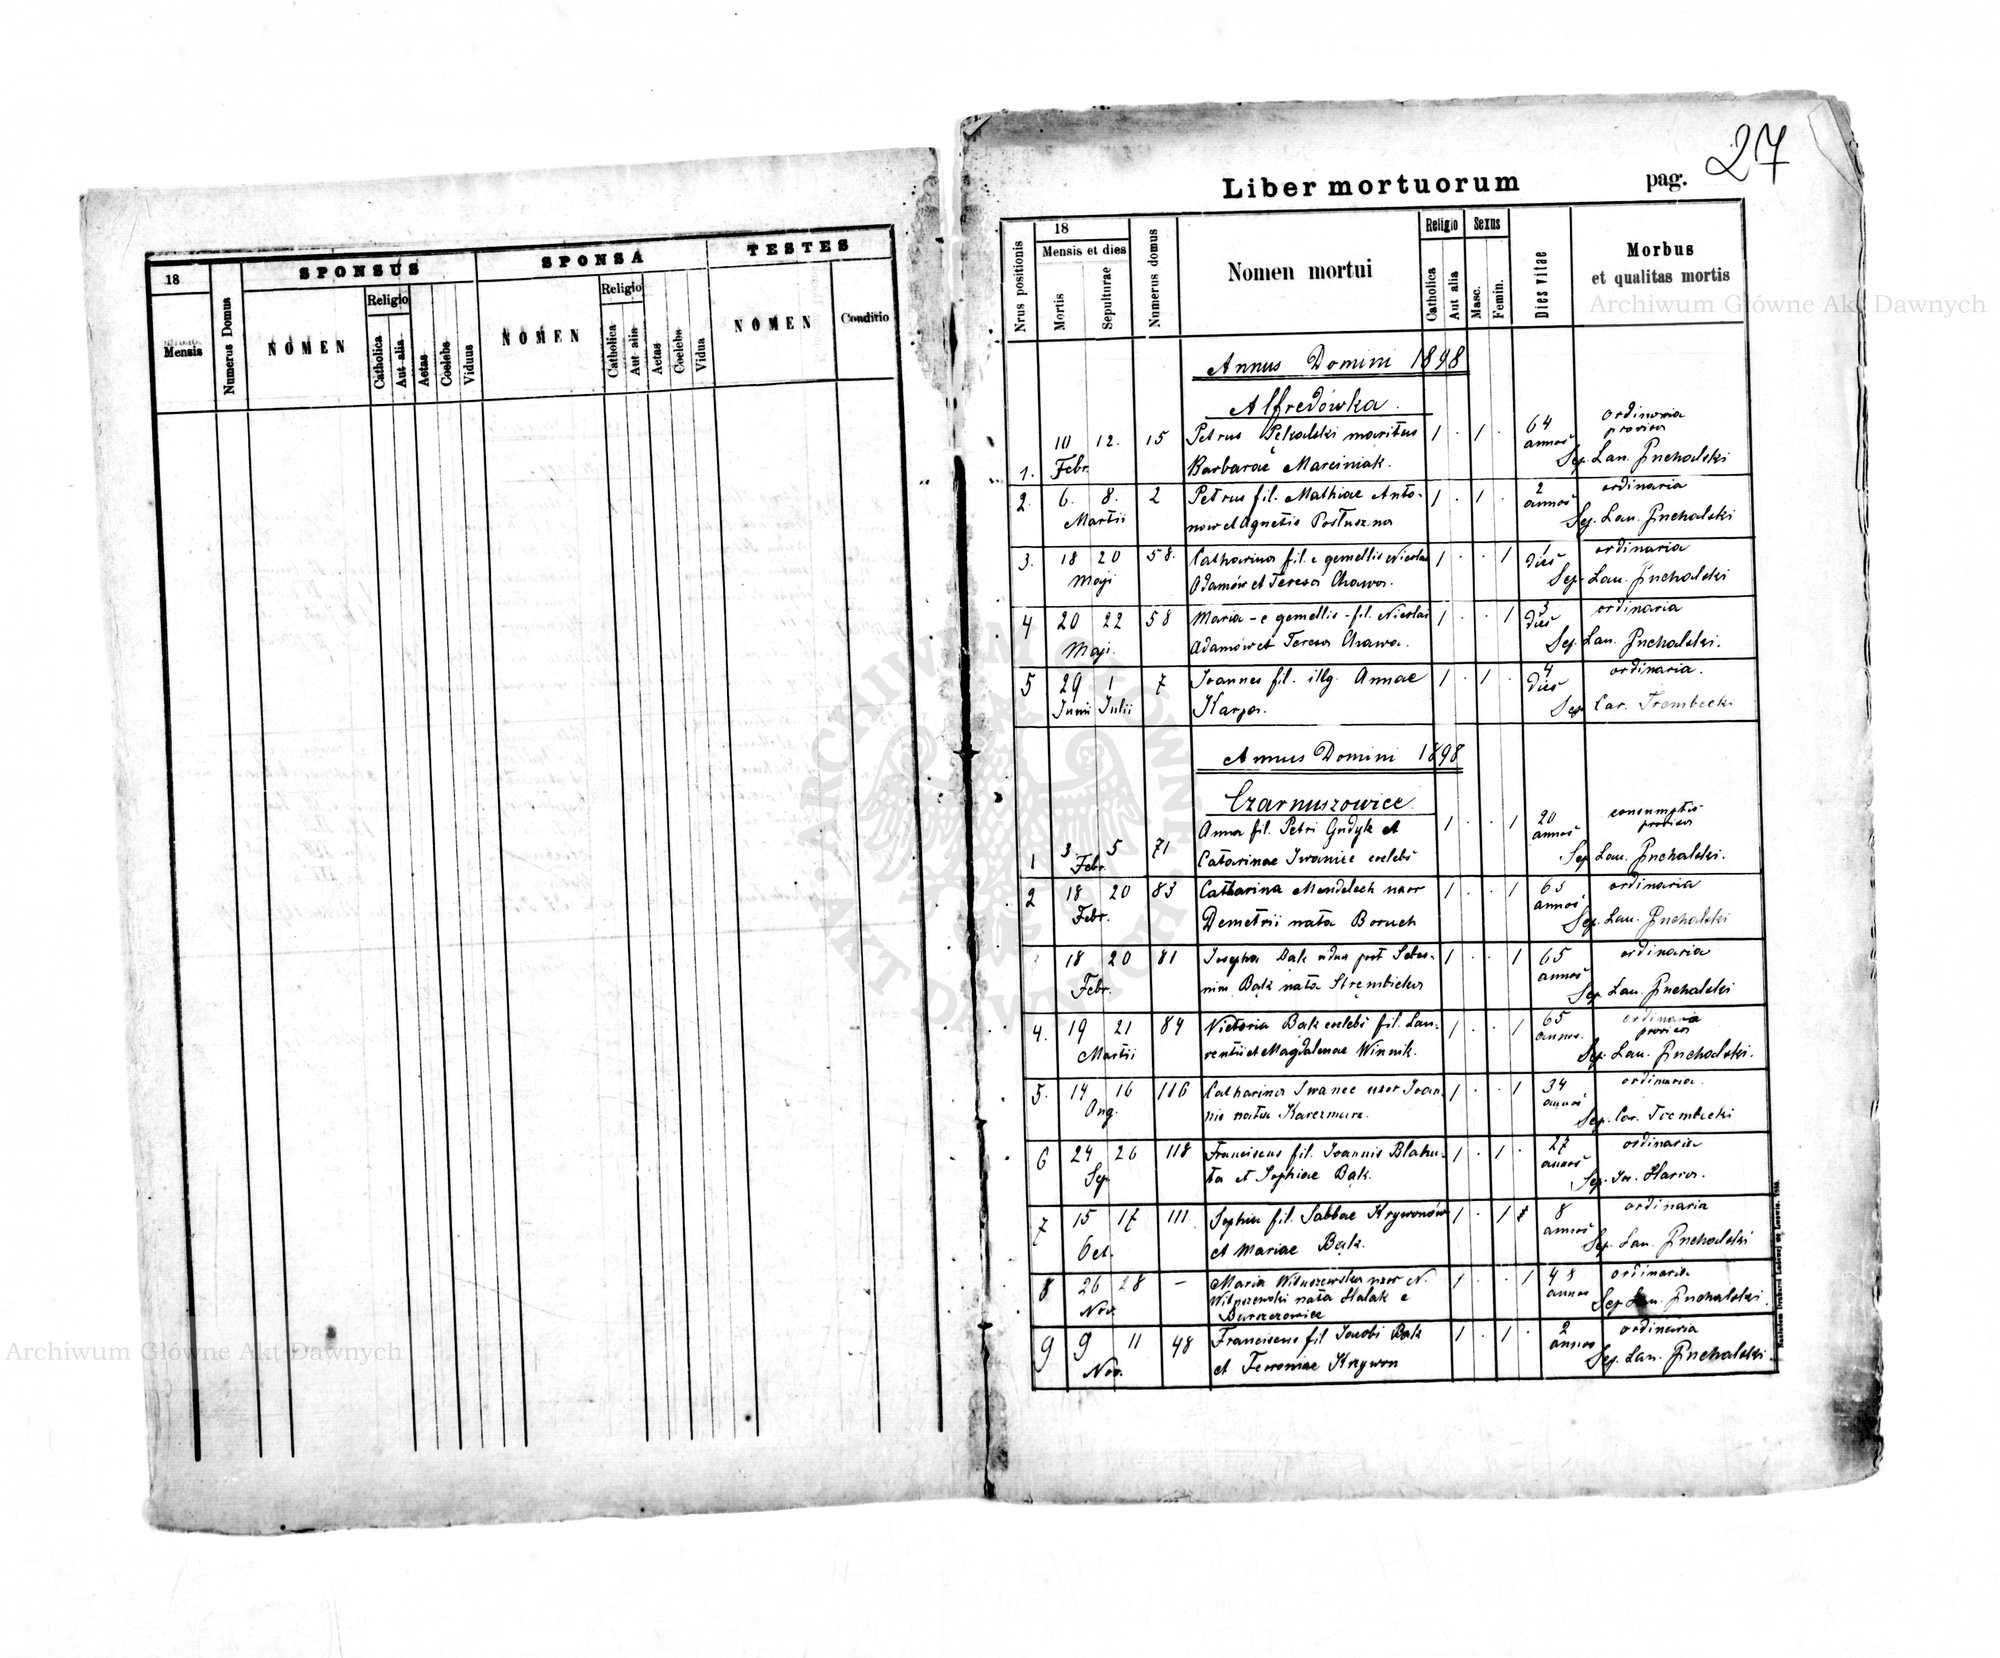 27
Liber mortuorum pag.
18
Mensis
Numerus Domus
SPONSUS
NOMEN
Religio
Catholica
Aut alia
Aetas
Coelebs
Viduus
SPONSA
NOMEN
Religio
Catholica
Aut alia
Aetas
Coelebs
Vidua
TESTES
NOMEN
Conditio
Nrus positionis
18
Mensis et dies
Mortis
Sepulturae
Numerus domus
Nomen mortui
Religio
Catholica
Aut alia
Sexus
Masc.
Femin.
Dies vitae
Morbus
et qualitas mortis
Archiwum Główne Akt Dawnych
Annus Domini 1898
Alfredówka.
1. 10 12. 15 Petrus Pękalski maritus 1 . 1 . 64 ordinaria
Febr. Barbarae Marciniak. annos provisa
Sep. Lau. Puchalski
2. 6. 8. 2 Petrus fil. Mathiae Anto- 1 . 1 . 2 ordinaria
Martii now et Agnetis Postuszna annos Sep. Lau. Puchalski
3. 18 20 58. Catharina fil. e gemellis Nicolai 1 . . 1 1 ordinaria
Maji Adamów et Teresa Chawa. dies Sep. Lau. Puchalski
4 20 22 58 Maria - e gemellis - fil. Nicolai 1 . . 1 3 ordinaria
Maji. Adamów et Teresa Chawa. dies Sep. Lau. Puchalski.
5 29 1 7 Joannes fil. illg. Annae 1 . 1 . 4 ordinaria.
Junii Julii Karpa. dies Sep. Car. Trembecki
Annus Domini 1898
Czarnuszowice.
1 3. 5 71 Anna fil. Petri Gudyk et 1 . . 1 20 consumptis
Febr. Catarinae Iwaniec coelebs annos provisa
Sep. Lau. Puchalski.
2 18 20 83 Catharina Mendelech uxor 1 . . 1 65 ordinaria
Febr. Demetrii nata Boruch annos Sep. Lau. Puchalski
18 20 81 Josepha Bąk vidua post 1 . . 1 65 ordinaria
Febr. Bąk nata Strembicka annos Sep. Lau. Puchalski
4. 19 21 84 Victoria Bąk coelebs fil. Lau- 1 . . 1 65 ordinaria
Martii rentii et Magdalenae Winnik. annos. provisa
Sep. Lau. Puchalski.
5. 14 16 116 Catharina Iwanec uxor Joan- 1 . . 1 34 ordinaria.
Aug. nis nata Karczmarz. annos Sep. Car. Trembecki
6 24 26 118 Franciscus fil. Joannis Blahu- 1 . 1 . 27 ordinaria
Sep. ta et Sophiae Bąk. annos Sep.
7 15 17 111 Sophia fil. Sabbae Krywonów 1 . 1 8 ordinaria
Oct. et Mariae Bąk. annos Sep. Lau. Puchalski
8 26 28 - Maria uxor N. 1 . . 1 48 ordinaria
Nov. nata Halak e annos Sep. Lau. Puchalski.
Barszczowice
9 9 11 48 Franciscus fil Jacobi Bąk 1 . 1 . 2 ordinaria
Nov. et Feroniae Krzywon annos Sep. Lau. Puchalski.
Archiwum Główne Akt Dawnych
ARCHIWUM GŁÓWNE AKT DAWNYCH